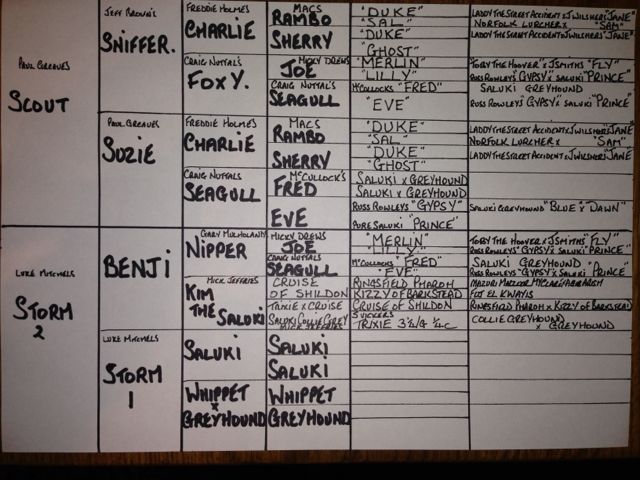 PAUL GREAVES
SCOUT
JEFF BROWN'S
SNIFFER.
FREDDIE HOLMES
CHARLIE
MACS
RAMBO
"DUKE"
"SAL"
LADDY THE STREET ACCIDENT x J WILSHERS "JANE"
NORFOLK LURCHER x "SAM"
SHERRY
"DUKE"
"GHOST"
LADDY THE STREET ACCIDENT x J WILSHERS "JANE"
CRAIG NUTTAL'S
FOXY.
MICKY DREWS
JOE
"MERLIN"
"LILLY"
"TOBY THE HOOVER x J SMITHS "FLY"
RUSS ROWLEYS "GYPSY" x SALUKI "PRINCE"
CRAIG NUTTALS
SEAGULL
McCULLOCKS "FRED"
"EVE"
SALUKI GREYHOUND
RUSS ROWLEYS "GYPSY" x SALUKI "PRINCE"
PAUL GREAVES
SUZIE
FREDDIE HOLMES
CHARLIE
MACS
RAMBO
"DUKE"
"SAL"
LADDY THE STREET ACCIDENT x J WILSHERS "JANE"
NORFOLK LURCHER x "SAM"
SHERRY
"DUKE"
"GHOST"
LADDY THE STREET ACCIDENT x J WILSHERS "JANE"
CRAIG NUTTALS
SEAGULL
McCULLOCK'S
FRED
SALUKI x GREYHOUND
SALUKI x GREYHOUND
EVE
RUSS ROWLEYS "GYPSY"
PURE SALUKI "PRINCE"
SALUKI GREYHOUND "BLUE" x "DAWN"
LUKE MITCHELS
STORM
2
BENJI
GARY MULHOLAND
NIPPER
MICKY DREWS
JOE
"MERLIN"
"LILLY"
TOBY THE HOOVER x J SMITHS "FLY"
RUSS ROWLEYS "GYPSY" x SALUKI "PRINCE"
CRAIG NUTTALS
SEAGULL
McCULLOCKS "FRED"
"EVE"
SALUKI GREYHOUND
RUSS ROWLEYS "GYPSY" x SALUKI "PRINCE"
MICK JEFFRIES
KIM
THE
SALUKI
CRUISE
OF SHILDON
RINGSFIELD PHAROH
KIZZY OF BARKSTEAD
FOT EL KWAYIS
TRIXIE x CRUISE
SALUKI COLLIE GREY
MICK JEFFRIES
CRUISE OF SHILDON
TRIXIE
RINGSFIELD PHAROH x KIZZY OF BARKSTEAD
COLLIE GREYHOUND
x GREYHOUND
LUKE MITCHELS
STORM
1
SALUKI
SALUKI
SALUKI
WHIPPET
x
GREYHOUND
WHIPPET
GREYHOUND